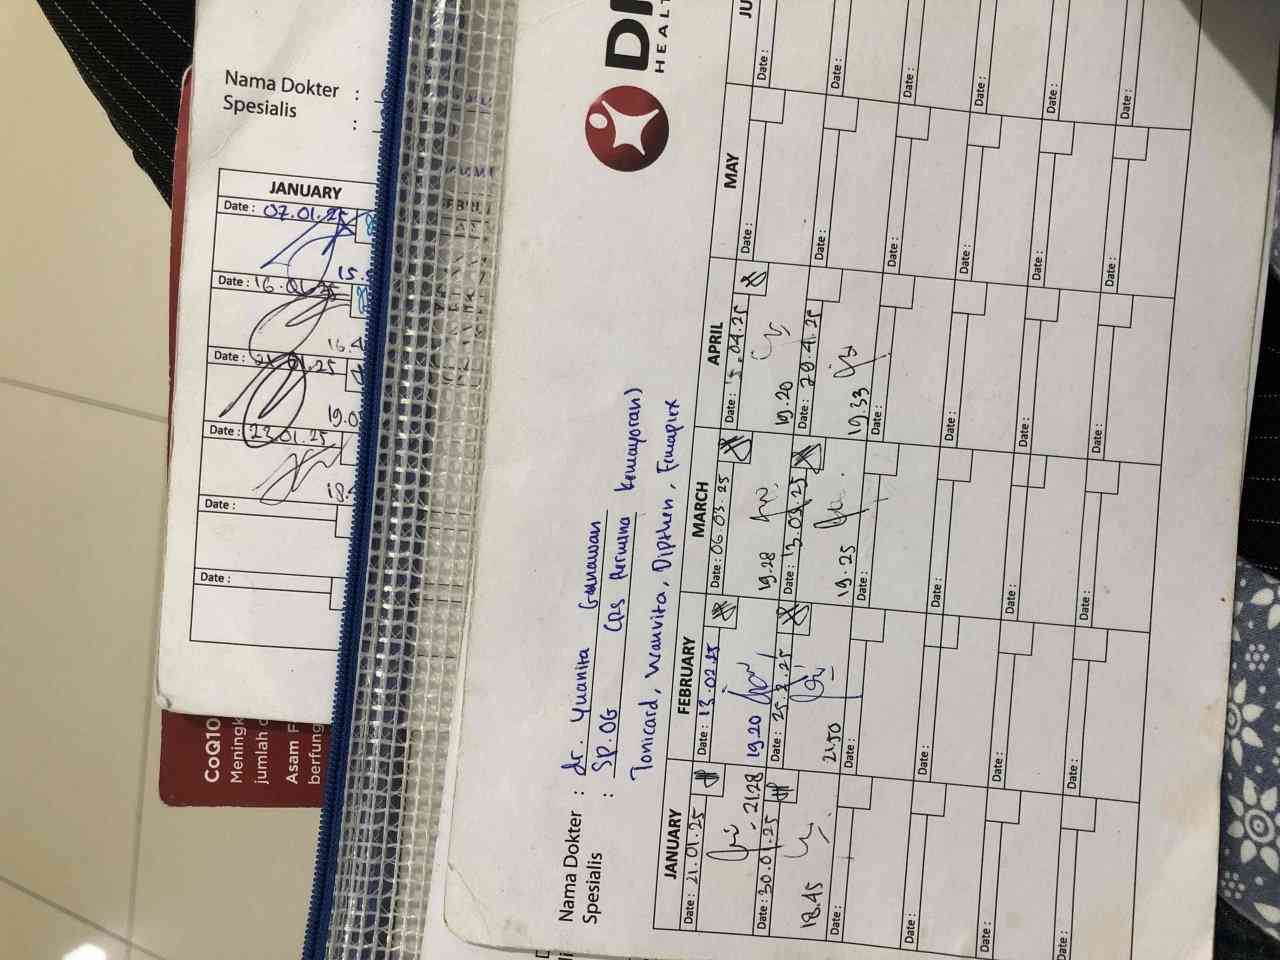 Nama Dokter :
Spesialis :
JANUARY
Date : 07.01.25
15.5
Date : 16.01.25
16.4
Date : 21.01.25
19.0
Date : 22.01.25
18.
Date :
Date :
CoQ10
Meningk
jumlah
Asam F
berfung
HEALT
Nama Dokter : dr. Yuanita Gunawan
Spesialis : Sp.OG (RS Hermina Kemayoran)
Tonicard, Wanvita, Dipthen, Femaplex
JANUARY FEBRUARY MARCH APRIL MAY JU
Date : 21.01.25 Date : 13.02.25 Date : 06.03.25 Date : .04.25 Date : Date :
21.28 19.20 19.28 19.20
Date : 30.01.25 Date : 25.2.25 Date : 13.03.25 Date : 29.4.25 Date : Date :
18.45 21.50 19.25 19.33
Date : Date : Date : Date : Date : Date :
Date : Date : Date : Date : Date : Date :
Date : Date : Date : Date : Date : Date :
Date : Date : Date : Date : Date : Date :